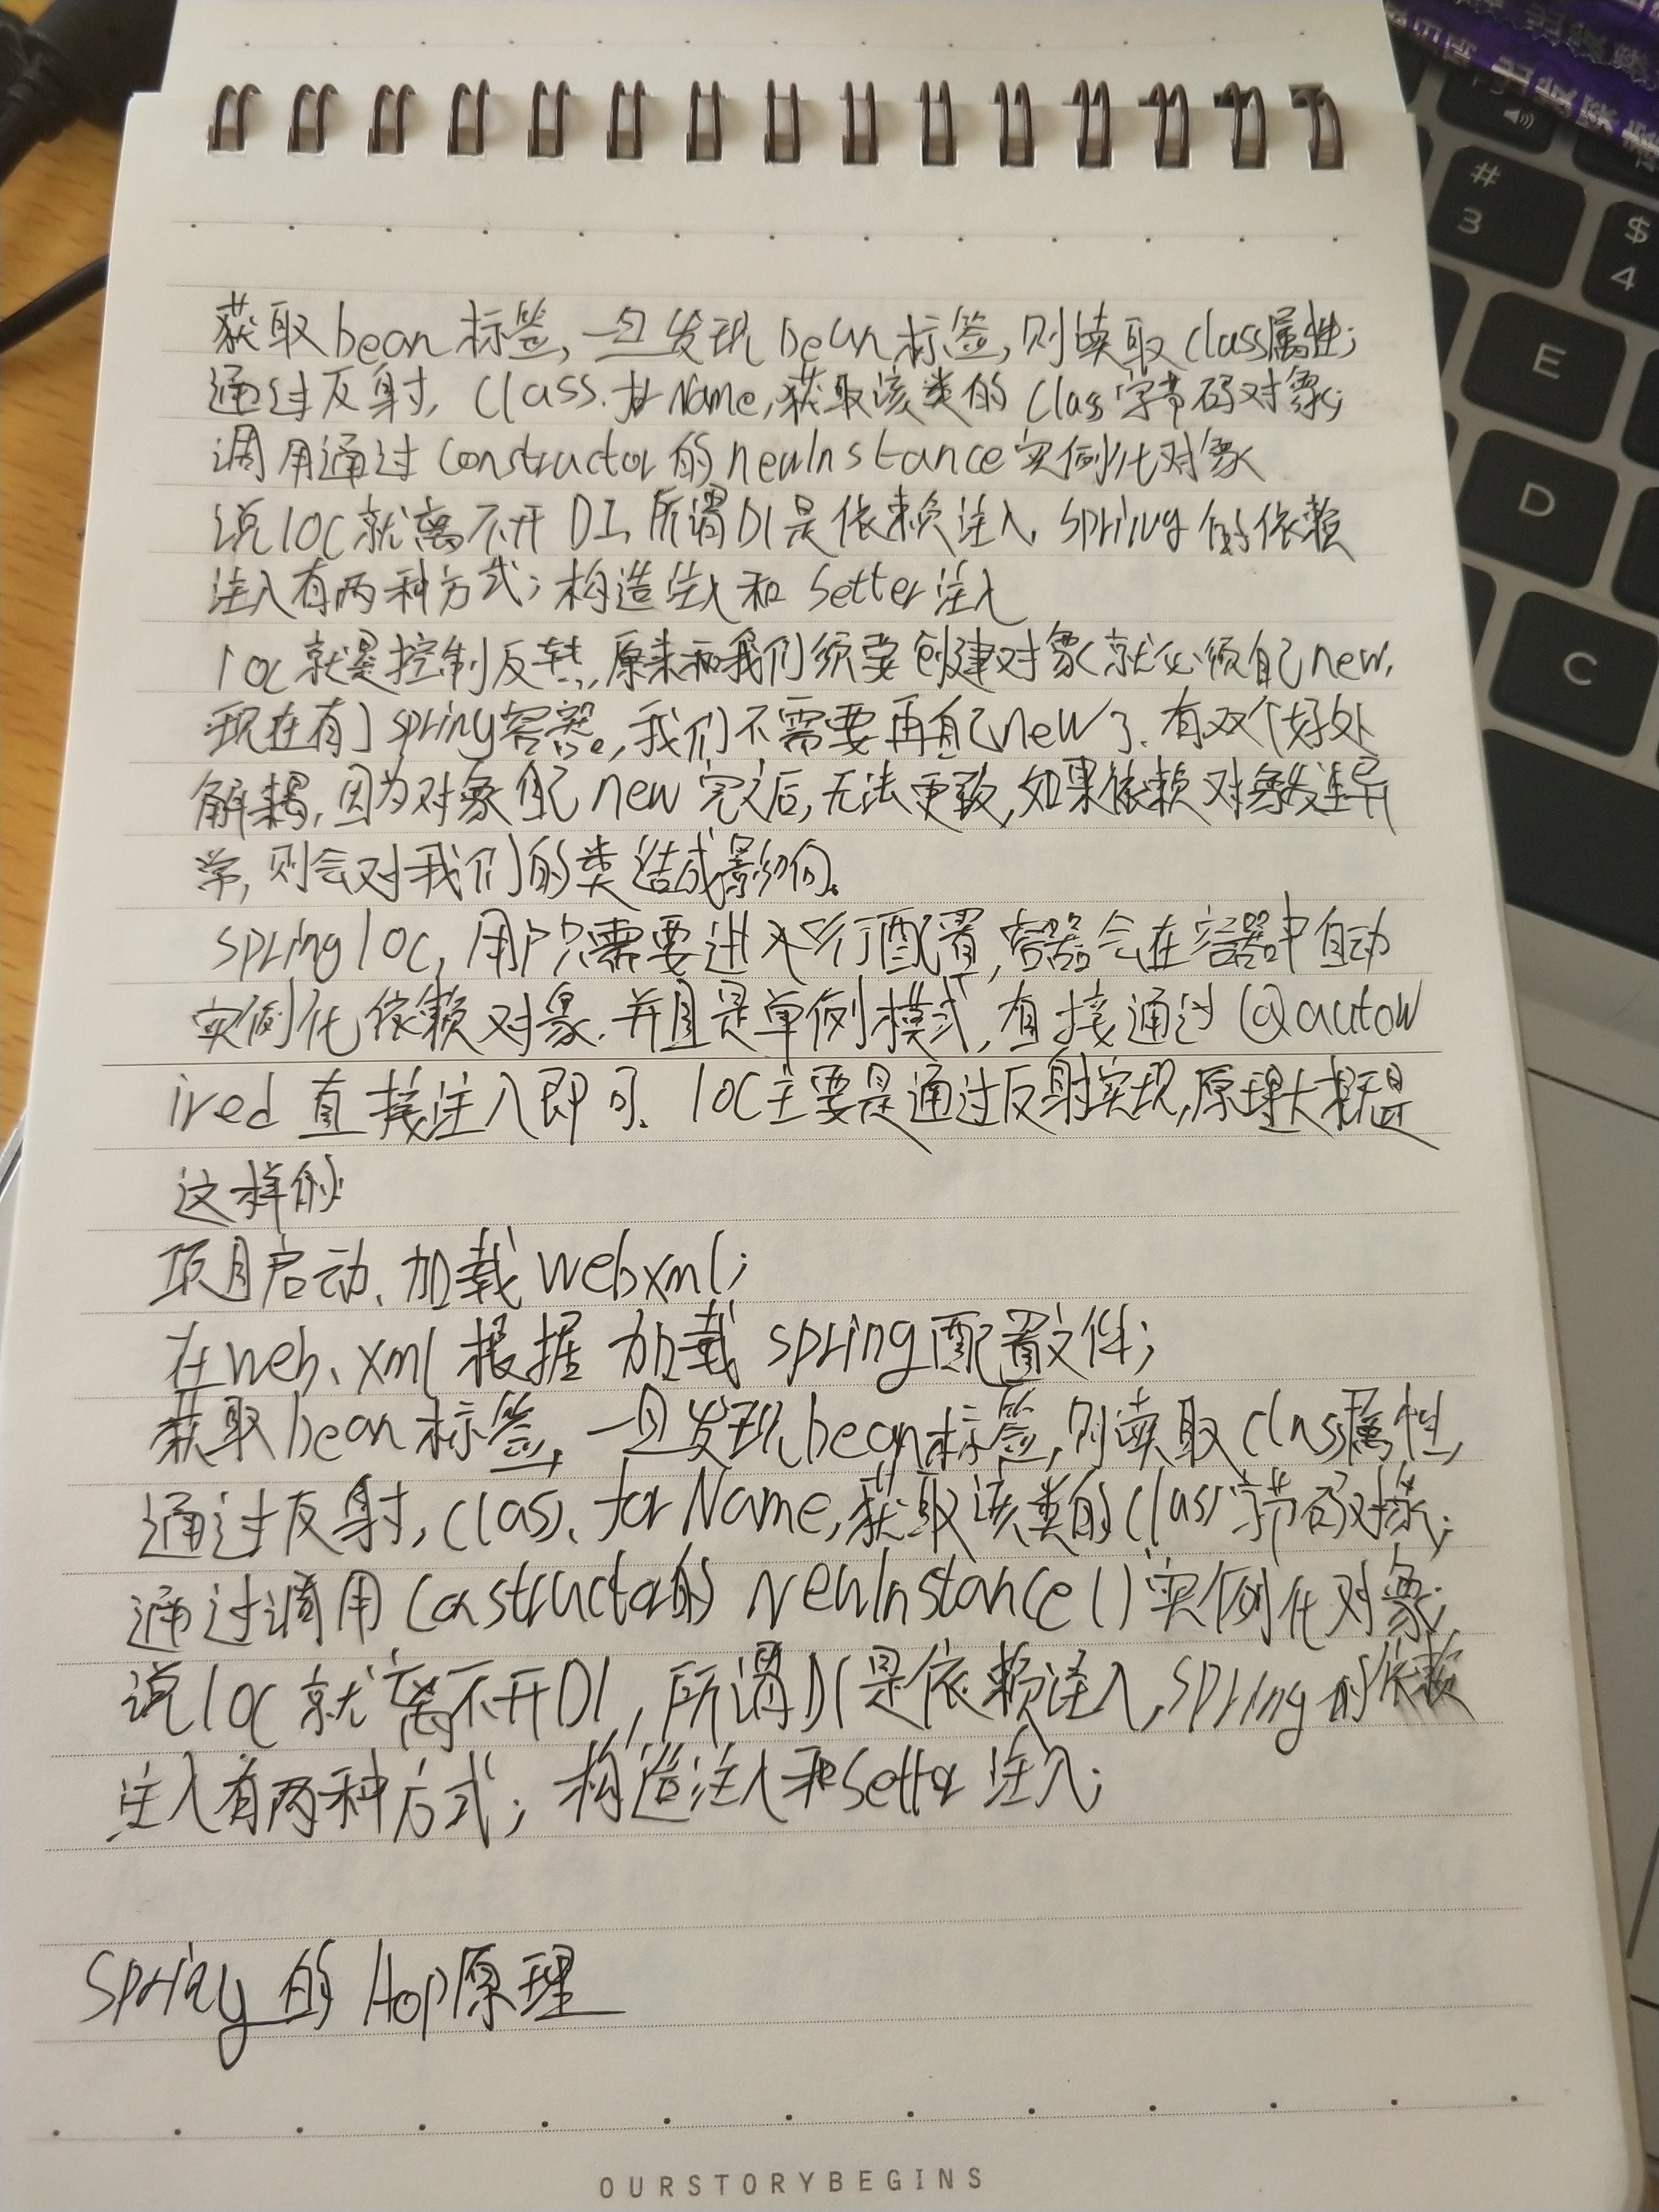 获取bean标签,一旦发现bean标签,则读取class属性;
通过反射, Class. Name,获取该类的Class字节码对象;
调用通过Constructor的newInstance实例化对象
说IOC就离不开DI,所谓DI是依赖注入,spring的依赖
注入有两种方式;构造注入和Setter注入
IOC就是控制反转,原来和我们须要创建对象就必须自己new,
现在有了spring容器。,我们不需要再自己new了.有双个好处
解耦,因为对象自己new完之后,无法更改,如果依赖对象发生异
常,则会对我们的类造成影响。
spring IOC,用户只需要进入 行配置,容器会在容器中自动
实例化依赖对象.并且是单例模式,直接通过@autow
ired直接注入即可.IOC主要是通过反射实现,原理大概是
这样的
项目启动、加载webxml;
在web.xml根据加载spring配置文件;
获取bean标签,一旦发现bean标签,则读取class属性,
通过反射,class.forName,获取该类的class字节码对象;
通过调用Constructor的newInstance()实例化对象;
说IOC就离不开DI,所谓DI是依赖注入,spring的依赖
注入有两种方式;构造注入和Setter注入;
Spring的Aop原理
# 3
$ 4
E
D
C
OURSTORYBEGINS